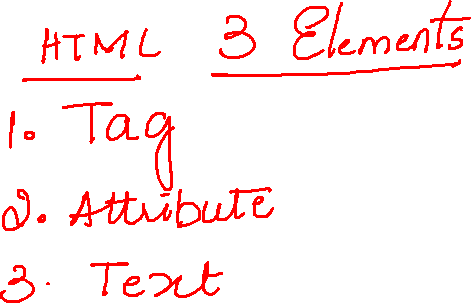 HTML 3 Elements
1. Tag
2. Attribute
3. Text